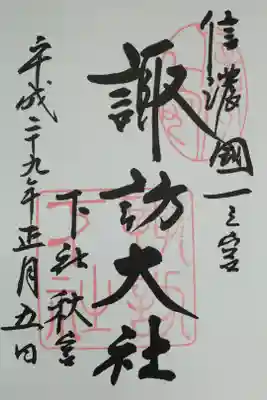 信濃國一之宮
諏訪大社
下社秋宮
平成二十九年正月五日